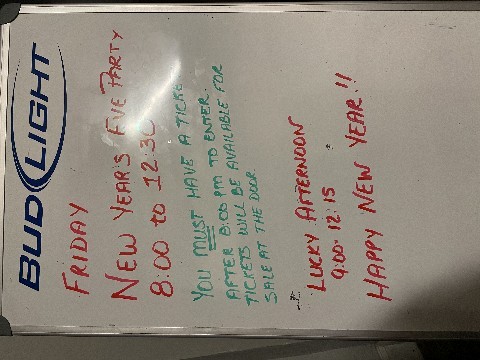 BUD LIGHT
FRIDAY
NEW YEAR'S EVE PARTY
8:00 to 12:30
YOU MUST HAVE A TICKET
AFTER 8:00 PM TO ENTER.
TICKETS WILL BE AVAILABLE FOR
SALE AT THE DOOR.
LUCKY AFTERNOON
9:00-12:15
HAPPY NEW YEAR!!